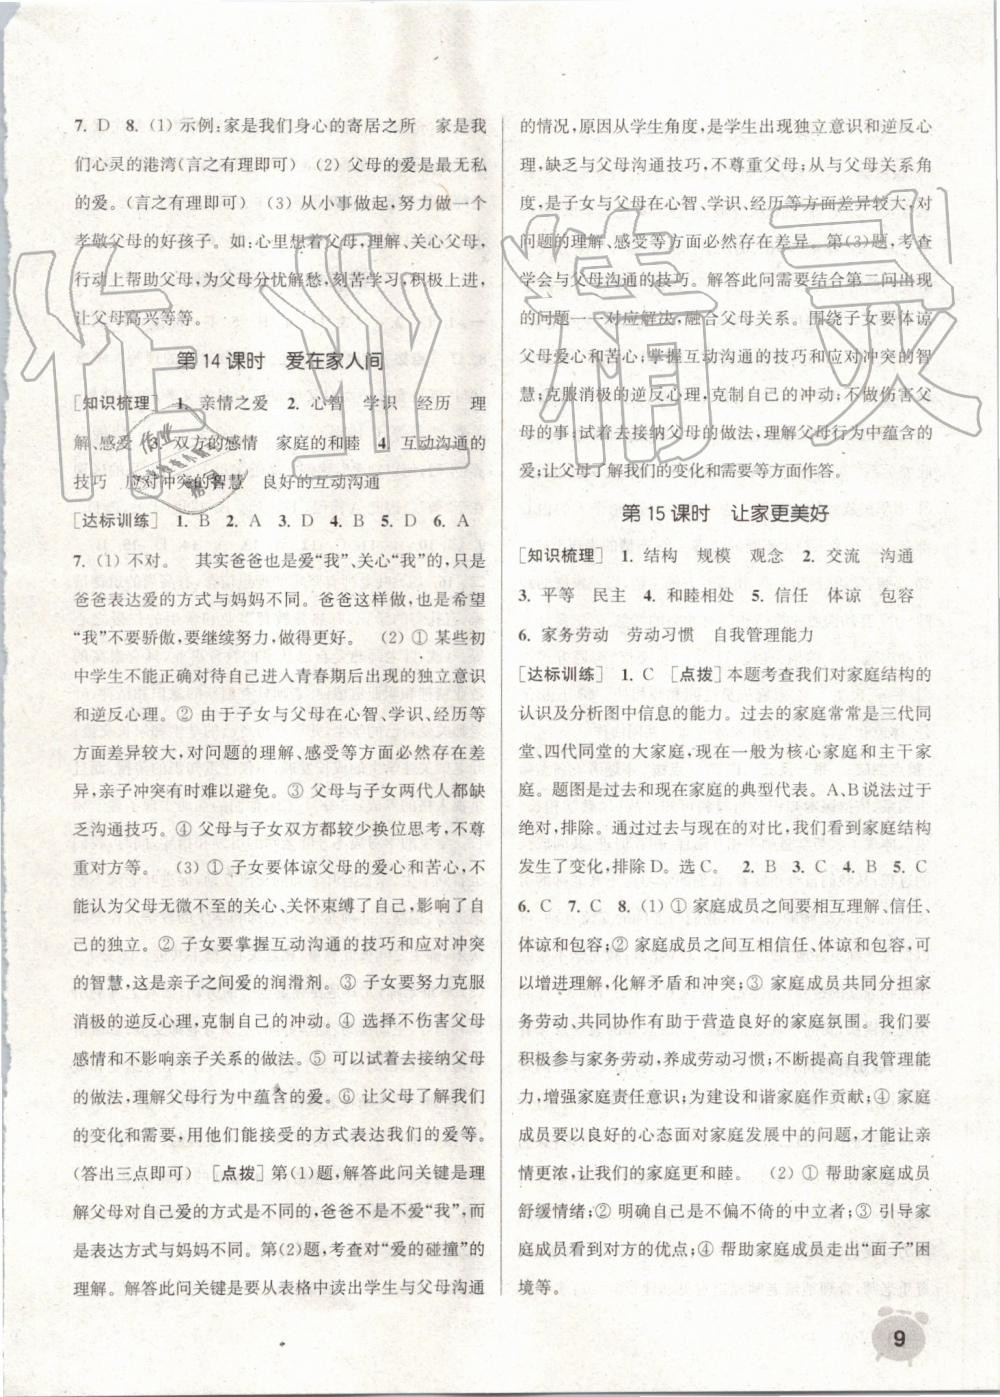 7. D 8. (1) 示例:家是我们身心的寄居之所 家是我
们心灵的港湾(言之有理即可) (2) 父母的爱是最无私
的爱。(言之有理即可) (3) 从小事做起,努力做一个
孝敬父母的好孩子。如:心里想着父母,理解、关心父母,
行动上帮助父母,为父母分忧解愁,刻苦学习,积极上进,
让父母高兴等等。
第 14 课时 爱在家人间
[知识梳理] 1. 亲情之爱 2. 心智 学识 经历 理
解、感爱 3. 双方的感情 家庭的和睦 4. 互动沟通的
技巧 应对冲突的智慧 良好的互动沟通
[达标训练] 1. B 2. A 3. D 4. B 5. D 6. A
7. (1) 不对。 其实爸爸也是爱“我”、关心“我”的,只是
爸爸表达爱的方式与妈妈不同。爸爸这样做,也是希望
“我”不要骄傲,要继续努力,做得更好。 (2) ① 某些初
中学生不能正确对待自己进入青春期后出现的独立意识
和逆反心理。② 由于子女与父母在心智、学识、经历等
方面差异较大,对问题的理解、感受等方面必然存在差
异,亲子冲突有时难以避免。③ 父母与子女两代人都缺
乏沟通技巧。④ 父母与子女双方都较少换位思考,不尊
重对方等。 (3) ① 子女要体谅父母的爱心和苦心,不
能认为父母无微不至的关心、关怀束缚了自己,影响了自
己的独立。② 子女要掌握互动沟通的技巧和应对冲突
的智慧,这是亲子之间爱的润滑剂。③ 子女要努力克服
消极的逆反心理,克制自己的冲动。④ 选择不伤害父母
感情和不影响亲子关系的做法。⑤ 可以试着去接纳父母
的做法,理解父母行为中蕴含的爱。⑥ 让父母了解我们
的变化和需要,用他们能接受的方式表达我们的爱等。
(答出三点即可) [点拨] 第(1)题,解答此问关键是理
解父母对自己爱的方式是不同的,爸爸不是不爱“我”,是
表达方式与妈妈不同。第(2)题,考查对“爱的碰撞”的
理解。解答此问关键是要从表格中读出学生与父母沟通
的情况,原因从学生角度,是学生出现独立意识和逆反心
理,缺乏与父母沟通技巧,不尊重父母;从与父母关系角
度,是子女与父母在心智、学识、经历等方面差异较大,对
问题的理解、感受等方面必然存在差异。第(3)题,考查
学会与父母沟通的技巧。解答此问需要结合第二问出现
的问题一一对应解法,融合父母关系。围绕子女要体谅
父母爱心和苦心;掌握互动沟通的技巧和应对冲突的智
慧;克服消极的逆反心理,克制自己的冲动;不做伤害父
母的事;试着去接纳父母的做法,理解父母行为中蕴含的
爱;让父母了解我们的变化和需要等方面作答。
第 15 课时 让家更美好
[知识梳理] 1. 结构 规模 观念 2. 交流 沟通
3. 平等 民主 4. 和睦相处 5. 信任 体谅 包容
6. 家务劳动 劳动习惯 自我管理能力
[达标训练] 1. C [点拨] 本题考查我们对家庭结构的
认识及分析图中信息的能力。过去的家庭常常是三代同
堂、四代同堂的大家庭,现在一般为核心家庭和主干家
庭。题图是过去和现在家庭的典型代表。A、B说法过于
绝对,排除。通过过去与现在的对比,我们看到家庭结构
发生了变化,排除 D。选 C。 2. B 3. C 4. B 5. C
6. C 7. C 8. (1) ① 家庭成员之间要相互理解、信任、
体谅和包容;② 家庭成员之间互相信任、体谅和包容,可
以增进理解,化解矛盾和冲突;③ 家庭成员共同分担家
务劳动、共同协作有助于营造良好的家庭氛围。我们要
积极参与家务劳动,养成劳动习惯;不断提高自我管理能
力,增强家庭责任意识;为建设和谐家庭作贡献;④ 家
庭成员要以良好的心态面对家庭发展中的问题,才能让亲
情更浓,让我们的家庭更和睦。 (2) ① 帮助家庭成员
舒缓情绪;② 明确自己是不偏不倚的中立者;③ 引导家
庭成员看到对方的优点;④ 帮助家庭成员走出“面子”困
境等。
9
作业精灵